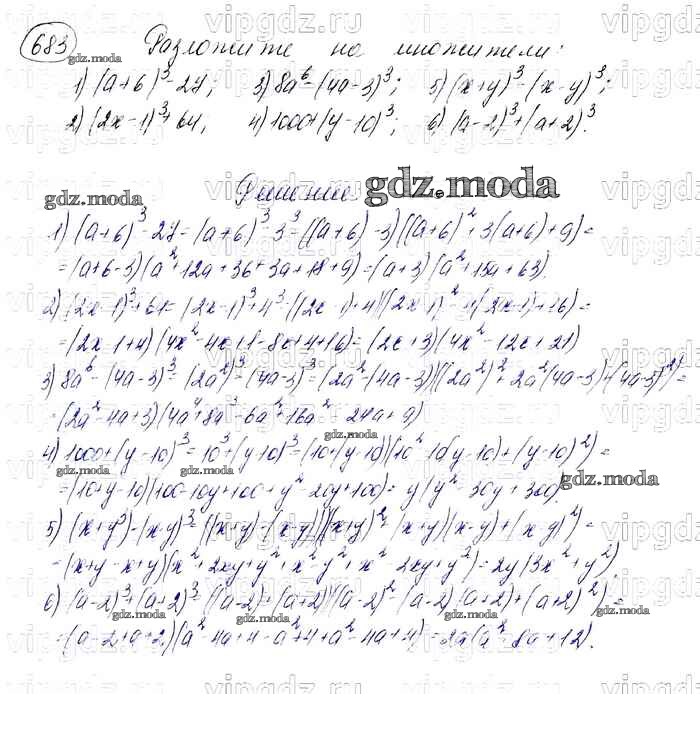 683 Разложите на множители:
1) (а+6)³-27; 3) 8а⁶-(4а-3)³; 5) (x+y)³-(x-y)³;
2) (2x-1)³+64; 4) 1000+(y-10)³; 6) (а-2)³+(а+2)³.
Решение.
gdz.moda
1) (а+6)³-27=(а+6)³-3³=((а+6)-3)((а+6)²+3(а+6)+9)=
=(а+6-3)(а²+12а+36+3а+18+9)=(а+3)(а²+15а+63).
2) (2x-1)³+64=(2x-1)³+4³=((2x-1)+4)((2x-1)²-4(2x-1)+16)=
=(2x-1+4)(4x²-4x+1-8x+4+16)=(2x+3)(4x²-12x+21)
3) 8а⁶-(4а-3)³=(2а²)³-(4а-3)³=(2а²-(4а-3))((2а²)²+2а²(4а-3)+(4а-3)²)=
=(2а²-4а+3)(4а⁴+8а³-6а²+16а²-24а+9)
4) 1000+(y-10)³=10³+(y-10)³=(10+(y-10))(10²-10(y-10)+(y-10)²)=
=(10+y-10)(100-10y+100+y²-20y+100)=y(y²-30y+300).
5) (x+y)³-(x-y)³=((x+y)-(x-y))((x+y)²+(x+y)(x-y)+(x-y)²)=
=(x+y-x+y)(x²+2xy+y²+x²-y²+x²-2xy+y²)=2y(3x²+y²)
6) (а-2)³+(а+2)³=((а-2)+(а+2))((а-2)²-(а-2)(а+2)+(а+2)²)=
=(а-2+а+2)(а²-4а+4-а²+4+а²-4а+4)=2а(а²-8а+12).
vipgdz.ru